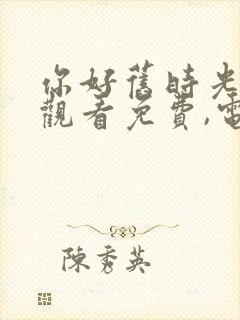 你好舊時光
觀看免費,電
陳秀英